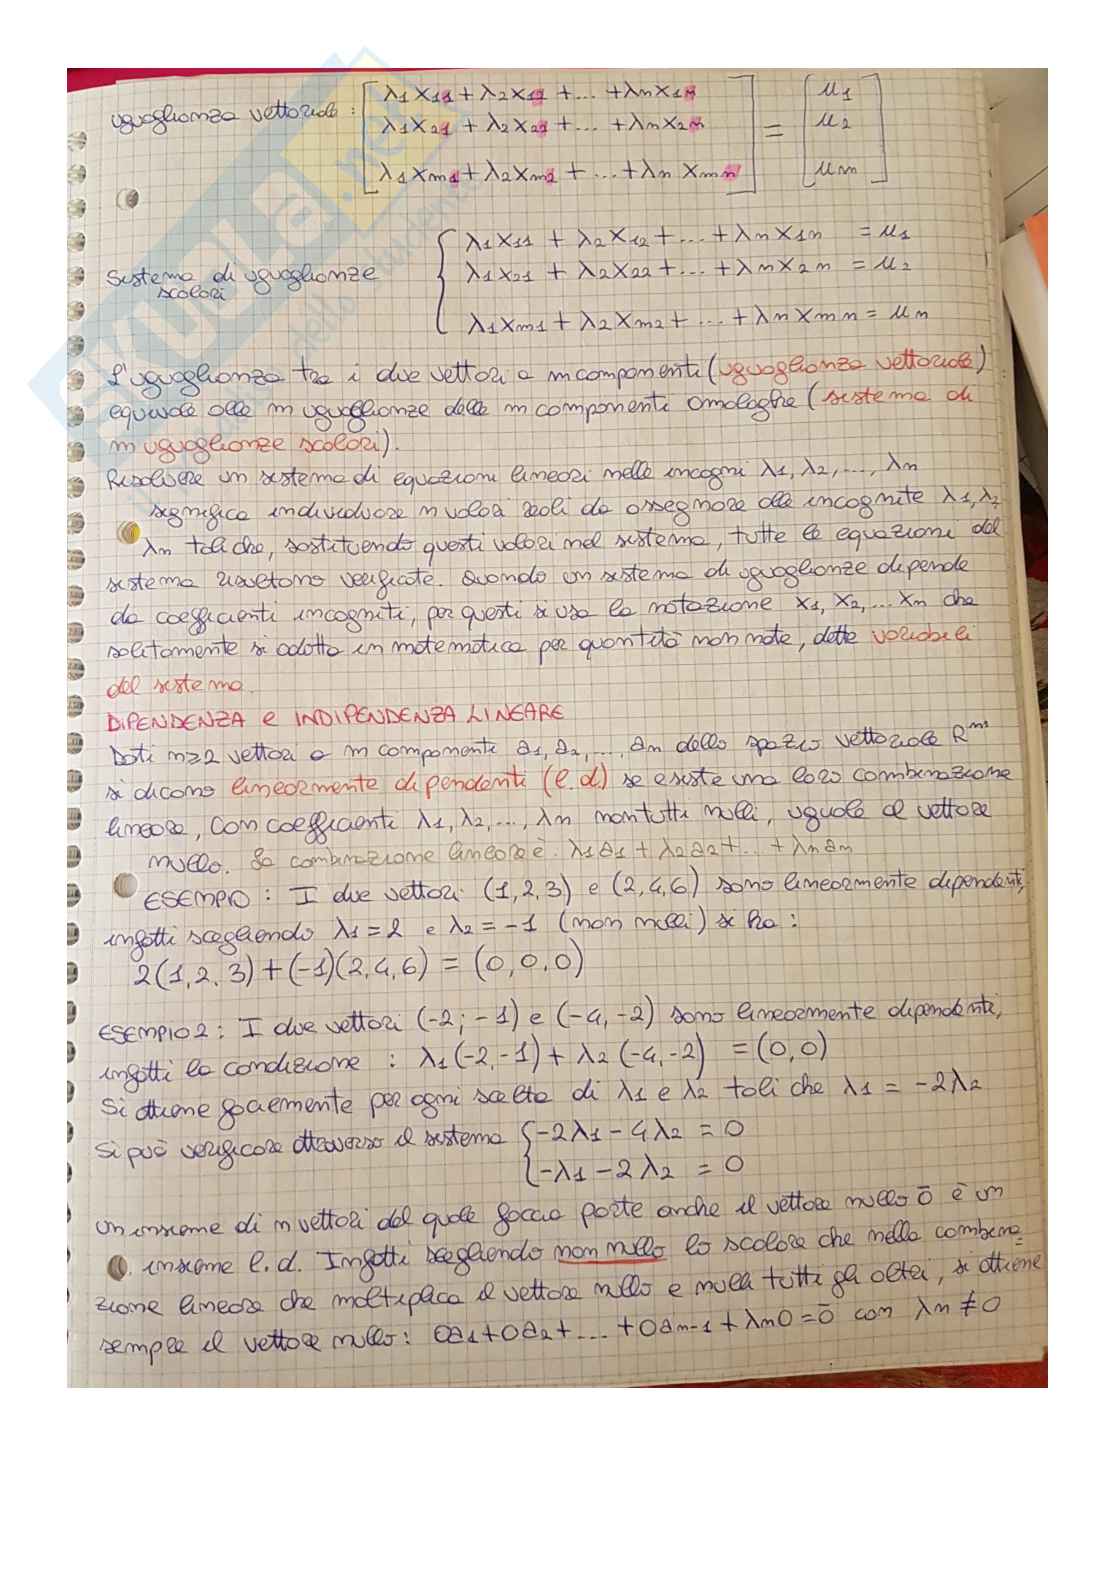 uguaglianza vettoriale : [ λ1 x11 + λ2 x12 + ... + λn x1n ] = [ μ1 ]
[ λ1 x21 + λ2 x22 + ... + λn x2n ] [ μ2 ]
[ λ1 xm1 + λ2 xm2 + ... + λn xmn ] [ μm ]
{ λ1 x11 + λ2 x12 + ... + λn x1n = μ1
Sistema di uguaglianze { λ1 x21 + λ2 x22 + ... + λn x2n = μ2
scalari
{ λ1 xm1 + λ2 xm2 + ... + λn xmn = μn
L'uguaglianza tra i due vettori a m componenti (uguaglianza vettoriale)
equivale alle m uguaglianze delle m componenti omologhe (sistema di
m uguaglianze scalari).
Risolvere un sistema di equazioni lineari nelle incogni λ1, λ2, ..., λn
significa individuare n valori reali da assegnare alle incognite λ1, λ2
λn tali che, sostituendo questi valori nel sistema, tutte le equazioni del
sistema risultano verificate. Quando un sistema di uguaglianze dipende
da coefficienti incogniti, per questi si usa la notazione x1, x2, ... xn che
solitamente si adotta in matematica per quantità non note, dette variabili
del sistema.
DIPENDENZA e INDIPENDENZA LINEARE
Dati n≥2 vettori a m componenti a1, a2, ..., an dello spazio vettoriale R^m
si dicono linearmente dipendenti (l.d.) se esiste una loro combinazione
lineare, con coefficienti λ1, λ2, ..., λn non tutti nulli, uguale al vettore
nullo. La combinazione lineare è λ1a1 + λ2a2 + ... + λnan
ESEMPIO : I due vettori (1,2,3) e (2,4,6) sono linearmente dipendenti,
infatti scegliendo λ1 = 2 e λ2 = -1 (non nulli) si ha :
2(1,2,3) + (-1)(2,4,6) = (0,0,0)
ESEMPIO 2 : I due vettori (-2; -1) e (-4, -2) sono linearmente dipendenti,
infatti la condizione : λ1(-2,-1) + λ2(-4,-2) = (0,0)
Si ottiene facilmente per ogni scelta di λ1 e λ2 tali che λ1 = -2λ2
Si può verificare attraverso il sistema { -2λ1 - 4λ2 = 0
{ -λ1 - 2λ2 = 0
Un insieme di n vettori del quale faccia parte anche il vettore nullo 0̄ è un
insieme l.d. Infatti scegliendo non nullo lo scalare che nella combina=
zione lineare che moltiplica il vettore nullo e nulli tutti gli altri, si ottiene
sempre il vettore nullo : 0a1 + 0a2 + ... + 0an-1 + λn0 = 0̄ con λn ≠ 0
SKUOLA.net